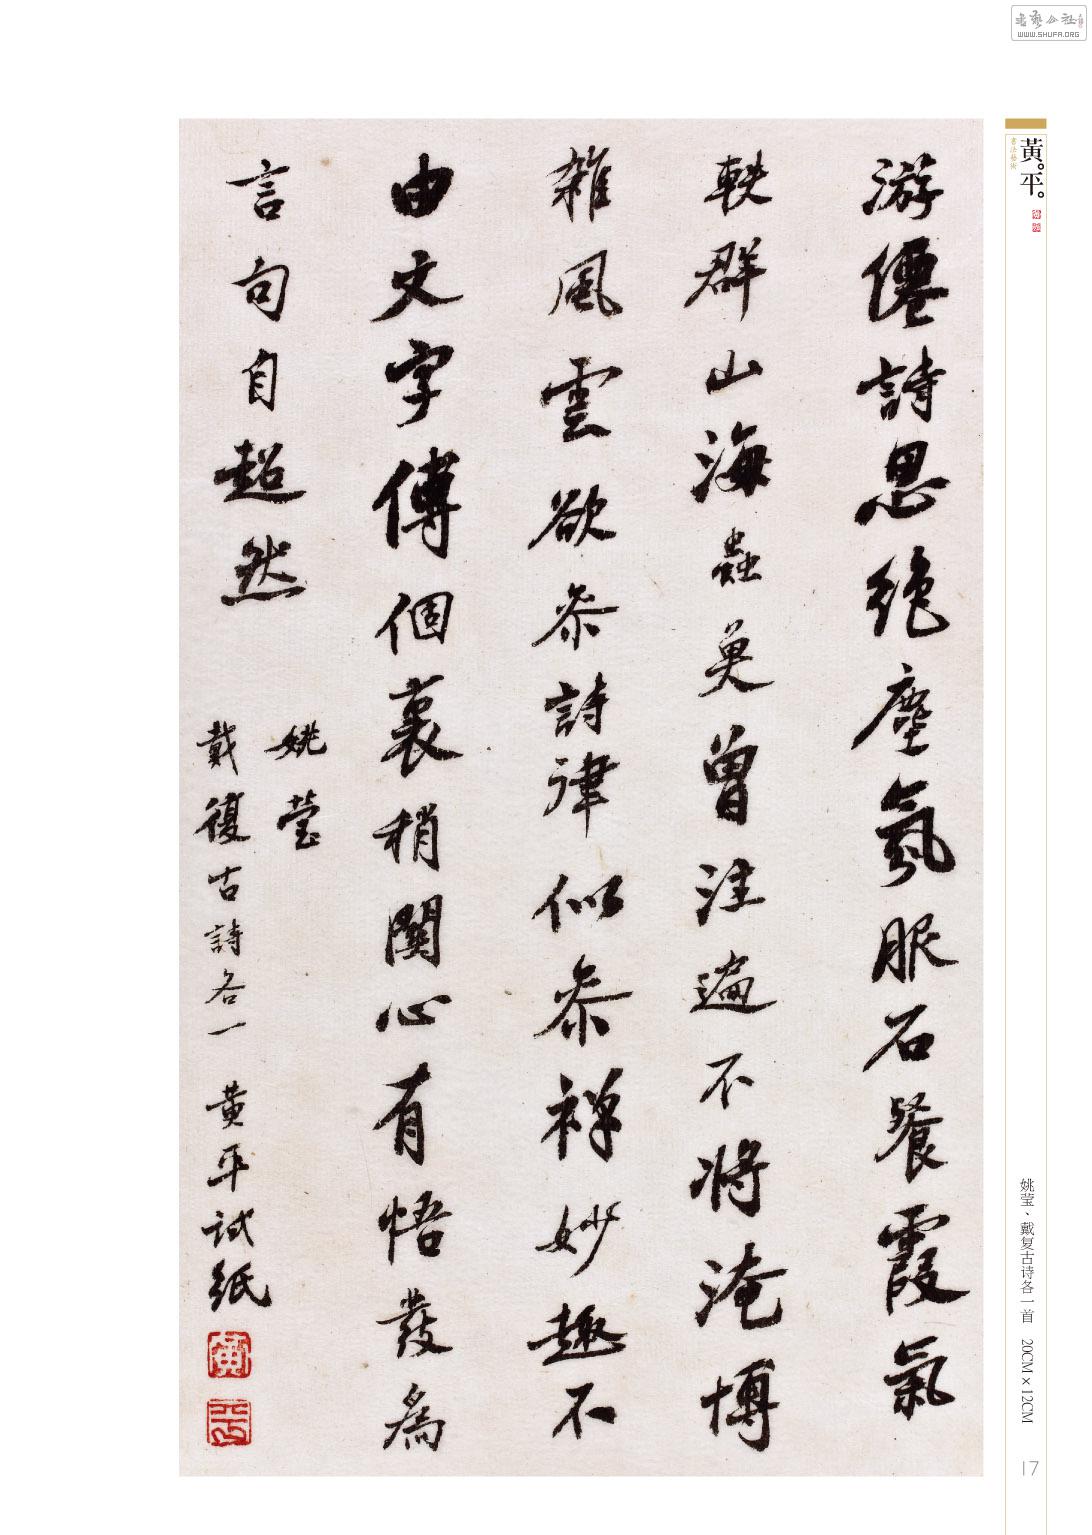 书艺公社
WWW.SHUFA.ORG
黃。平。
書法藝術
游僊詩思絶塵氛服石餐霞氣
軼群山海蟲魚曾注遍不將淹博
雜風雲欲參詩律似參禪妙趣不
由文字傳個裏稍關心有悟發爲
言句自超然
姚瑩
戴復古詩各一 黄平試紙
黄
平
姚莹、戴复古诗各一首 20CM×12CM
17